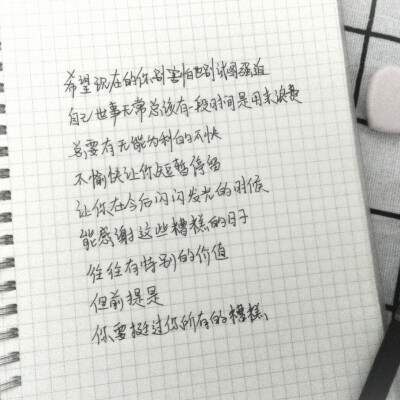 希望现在的你别害怕也别试图强迫
自己世事无常总该有一段时间是用来浪费
总要有无能为利的不快
不愉快让你短暂停留
让你在今后闪闪发光的时候
能感谢这些糟糕的日子
往往有特别的价值
但前提是
你要挺过你所有的糟糕